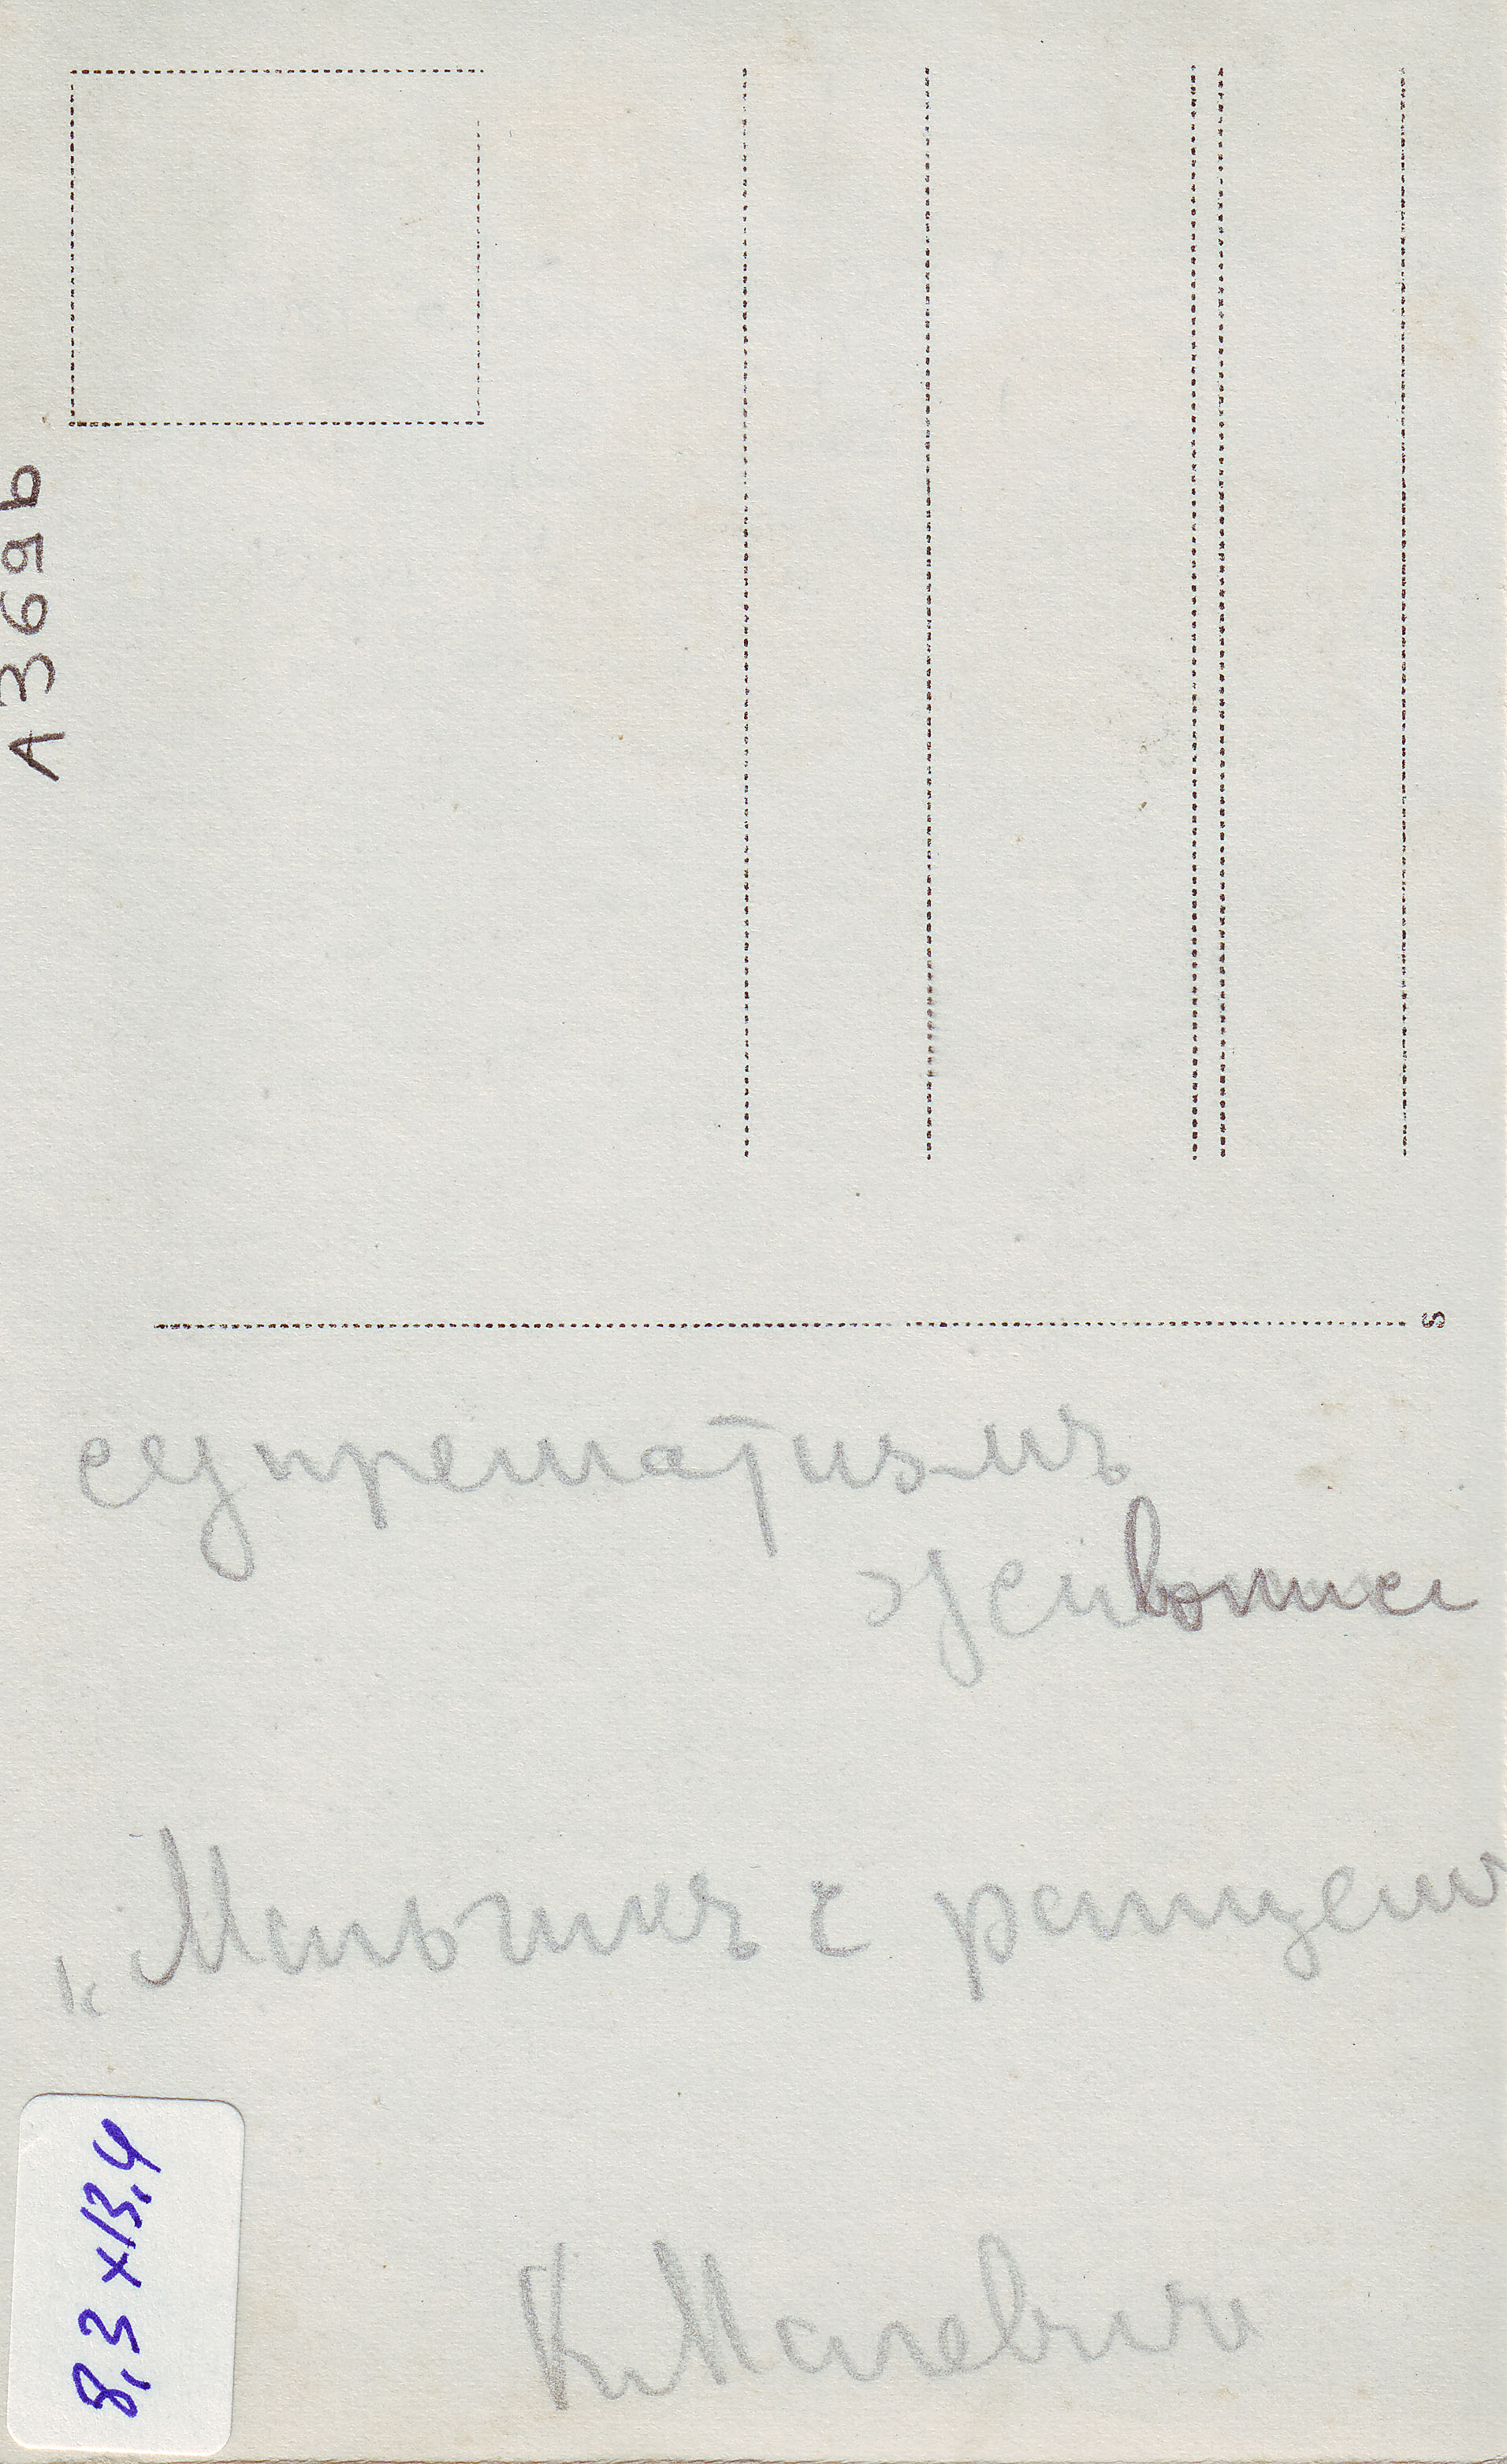 A369b
S
супрематизмъ
живописи
"Мальчикъ с ранцем
К Малевичъ
8,3 x 13,4